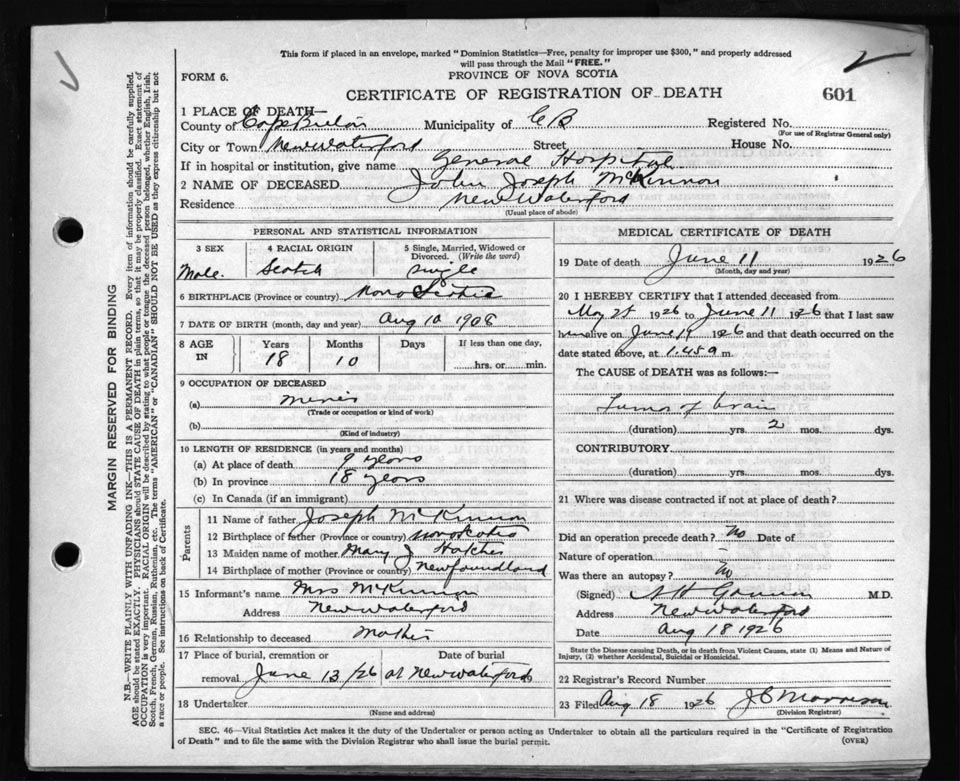 This form if placed in an envelope, marked "Dominion Statistics—Free, penalty for improper use $300," and properly addressed
will pass through the Mail "FREE."
FORM 6.
PROVINCE OF NOVA SCOTIA
CERTIFICATE OF REGISTRATION OF DEATH
601
1 PLACE OF DEATH—
County of Cape Breton Municipality of C B Registered No.
(For use of Registrar General only)
City or Town New Waterford Street House No.
If in hospital or institution, give name General Hospital
2 NAME OF DECEASED John Joseph McKinnon
Residence New Waterford
(Usual place of abode)
PERSONAL AND STATISTICAL INFORMATION
3 SEX 4 RACIAL ORIGIN 5 Single, Married, Widowed or
Divorced. (Write the word)
Male. Scotch single
6 BIRTHPLACE (Province or country) Nova Scotia
7 DATE OF BIRTH (month, day and year) Aug 10 1908
8 AGE IN Years Months Days If less than one day,
18 10 hrs. or min.
9 OCCUPATION OF DECEASED
(a) miner
(Trade or occupation or kind of work)
(b)
(Kind of industry)
10 LENGTH OF RESIDENCE (in years and months)
(a) At place of death 9 years
(b) In province 18 years
(c) In Canada (if an immigrant)
Parents
11 Name of father Joseph McKinnon
12 Birthplace of father (Province or country) Nova Scotia
13 Maiden name of mother Mary J
14 Birthplace of mother (Province or country) Newfoundland
15 Informant's name Mrs McKinnon
Address New Waterford
16 Relationship to deceased Mother
17 Place of burial, cremation or Date of burial
removal June 13/26 at New Waterford 19
18 Undertaker
(Name and address)
MEDICAL CERTIFICATE OF DEATH
19 Date of death June 11 1926
(Month, day and year)
20 I HEREBY CERTIFY that I attended deceased from
May 1926 to June 11 1926 that I last saw
him alive on June 1926 and that death occurred on the
date stated above, at 1.45 a m.
The CAUSE of DEATH was as follows:—
Tumor of brain
(duration) yrs. 2 mos. dys.
CONTRIBUTORY
(duration) yrs. mos. dys.
21 Where was disease contracted if not at place of death?
Did an operation precede death? No Date of
Nature of operation —
Was there an autopsy? No
(Signed) M.D.
Address New Waterford
Date Aug 18 1926
State the Disease causing Death, or in death from Violent Causes, state (1) Means and Nature of
Injury, (2) whether Accidental, Suicidal or Homicidal.
22 Registrar's Record Number
23 Filed Aug 18 1926 J C Morrison
(Division Registrar)
SEC. 46—Vital Statistics Act makes it the duty of the Undertaker or person acting as Undertaker to obtain all the particulars required in the "Certificate of Registration
of Death" and to file the same with the Division Registrar who shall issue the burial permit.
(OVER)
MARGIN RESERVED FOR BINDING
N.B.—WRITE PLAINLY WITH UNFADING INK—THIS IS A PERMANENT RECORD. Every item of information should be carefully supplied.
AGE should be stated EXACTLY. PHYSICIANS should STATE CAUSE OF DEATH in plain terms, so that it may be properly classified. Exact statement of
OCCUPATION is very important. RACIAL ORIGIN will be described by stating to what people or tongue the deceased person belonged, whether English, Irish,
Scotch, French, German, Russian, Ruthenian, etc. The terms "AMERICAN" or "CANADIAN" SHOULD NOT BE USED as they express citizenship but not
a race or people. See instructions on back of Certificate.